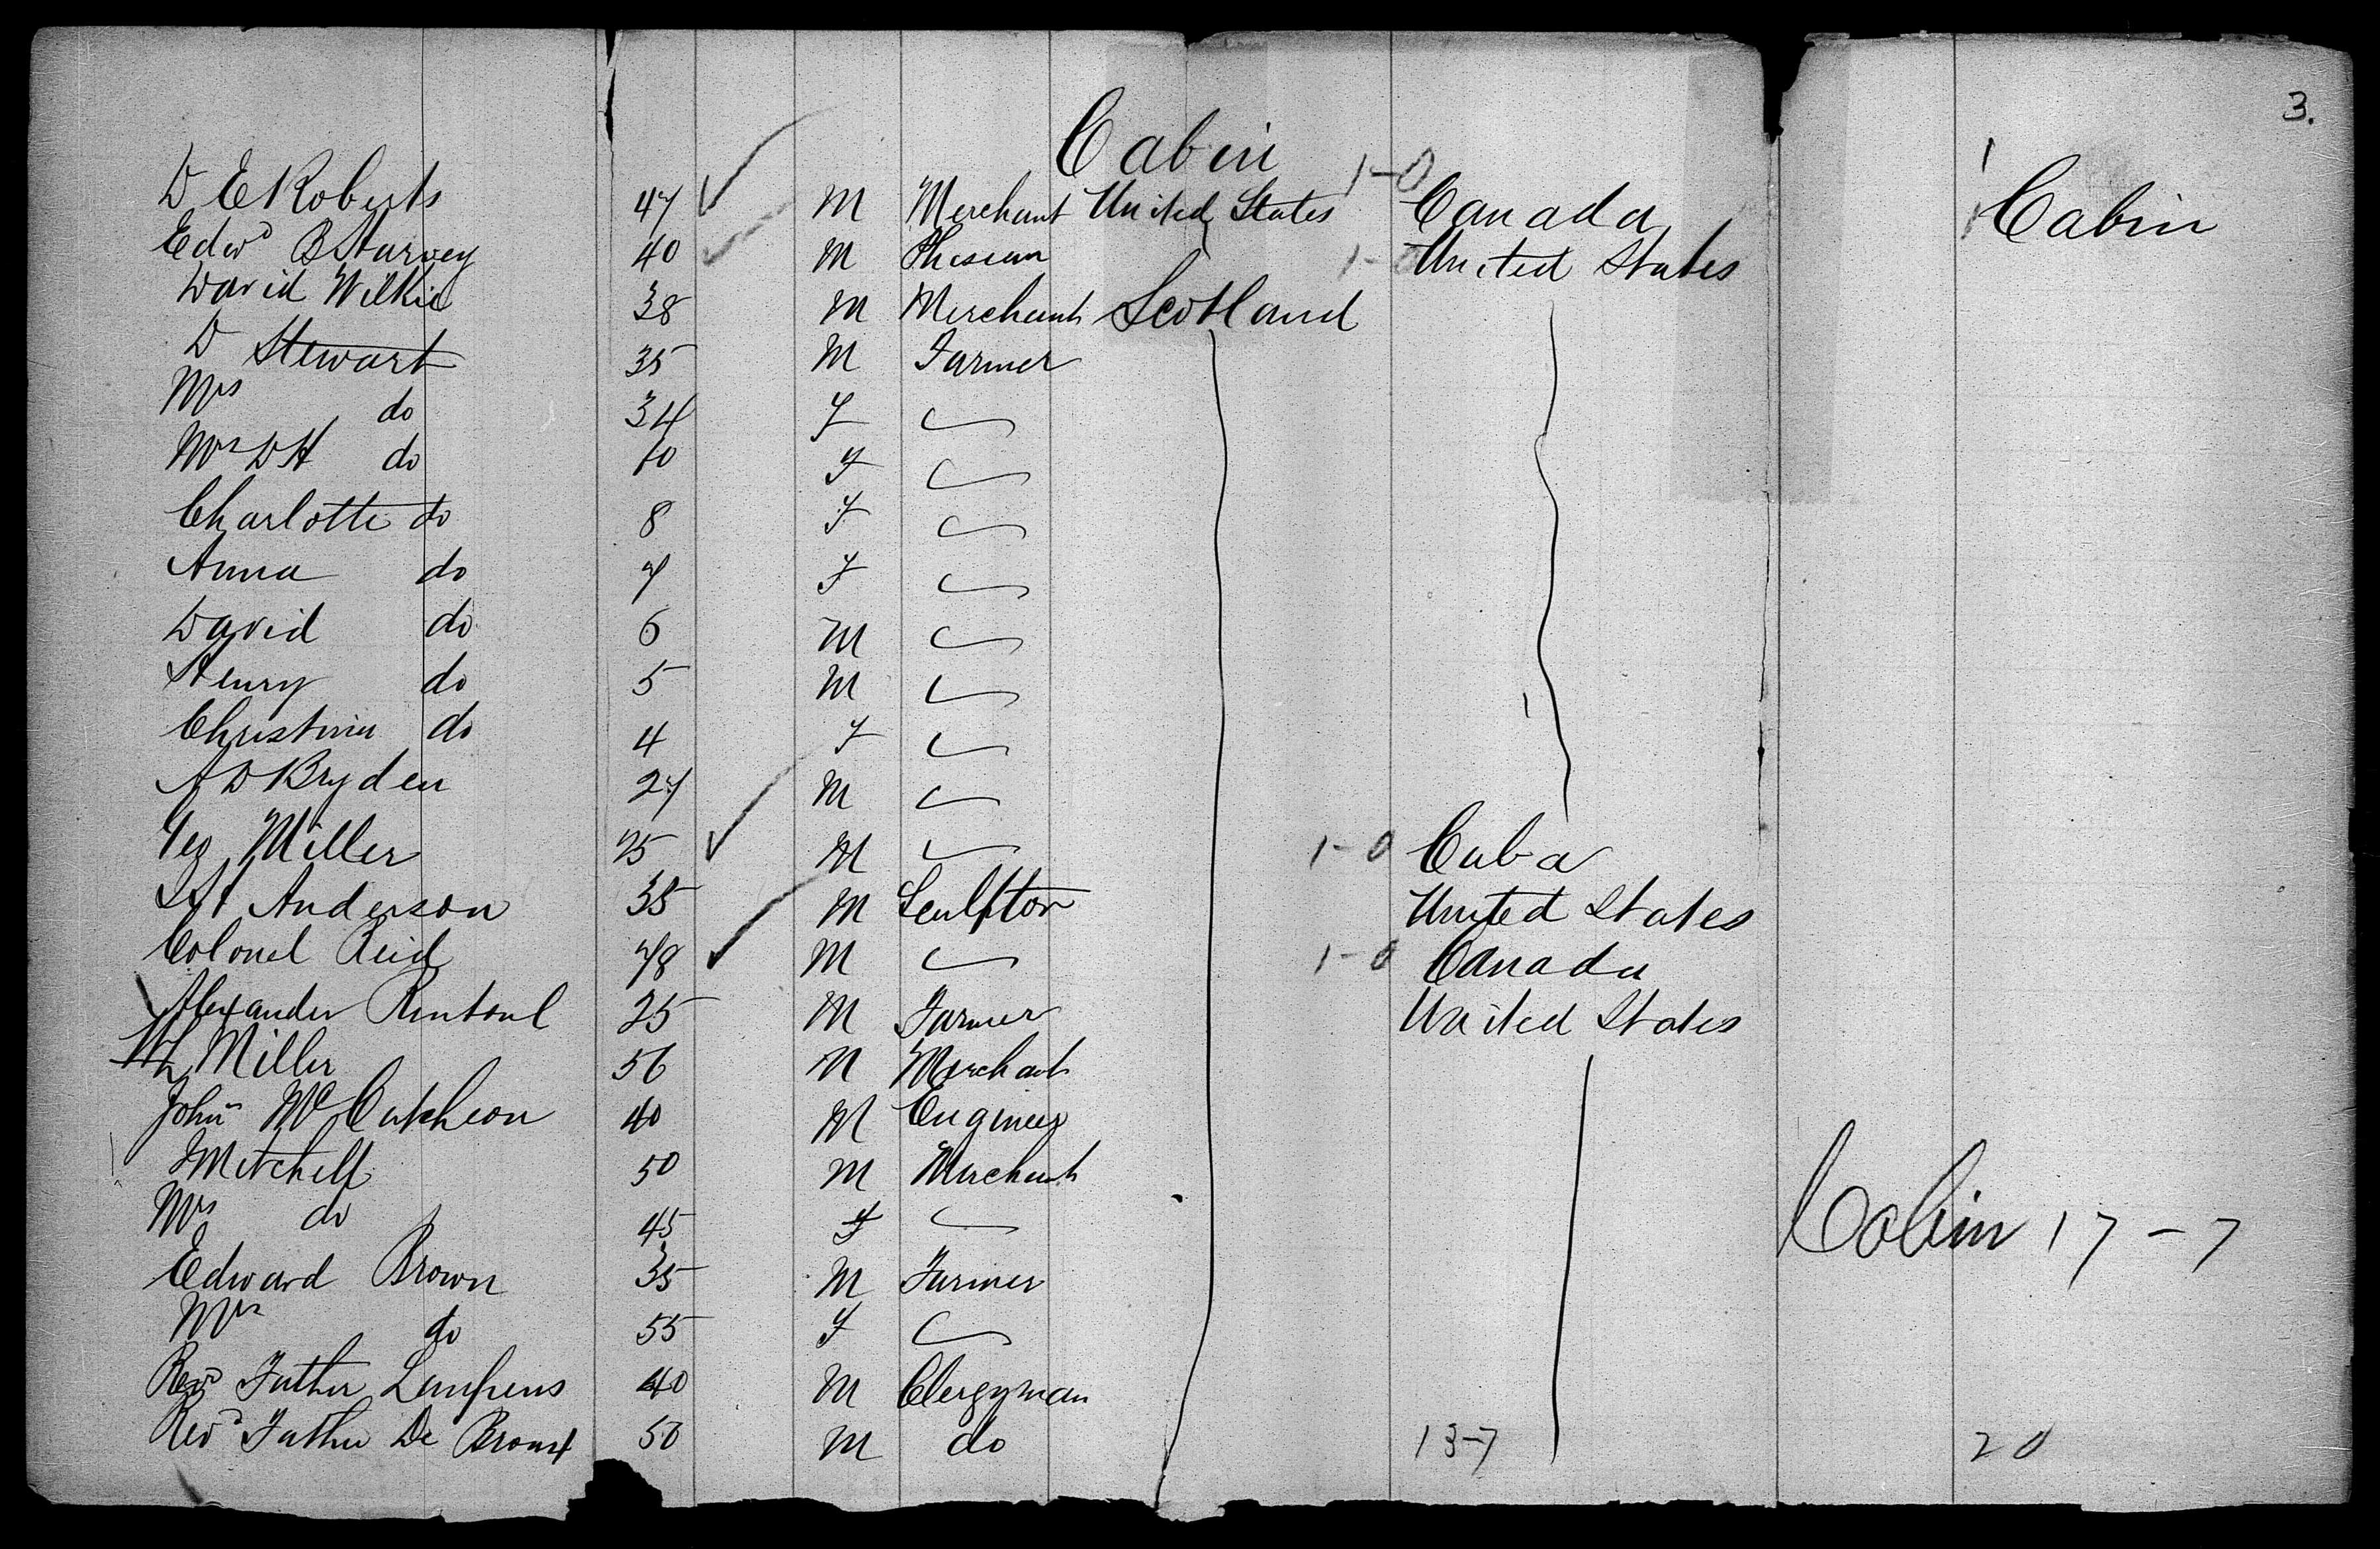 3.
Cabin
D E Roberts 47 M Merchant United States 1-0 Canada Cabin
Edwd B Harvey 40 M Phisean 1-0 United States
David Wilkie 38 M Merchant Scotland
D Stewart 35 M Farmer
Mrs do 34 F
Mrs D H do 10 F
Charlotte do 8 F
Anna do 7 F
David do 6 M
Henry do 5 M
Christina do 4 F
A D Bryden 27 M
Geo Miller 25 M 1-0 Cuba
Anderson 35 M Sculptor United States
Colonel Reid 78 M 1-0 Canada
Alexander Rintoul 25 M Farmer United States
Miller 56 M Merchant
John McCutcheon 40 M Engineer
Mitchell 50 M Merchant
Mrs do 45 F
Cabin 17-7
Edward Brown 35 M Farmer
Mrs do 55 F
Revd Father 40 M Clergyman
Revd Father De 50 M do 13-7 20